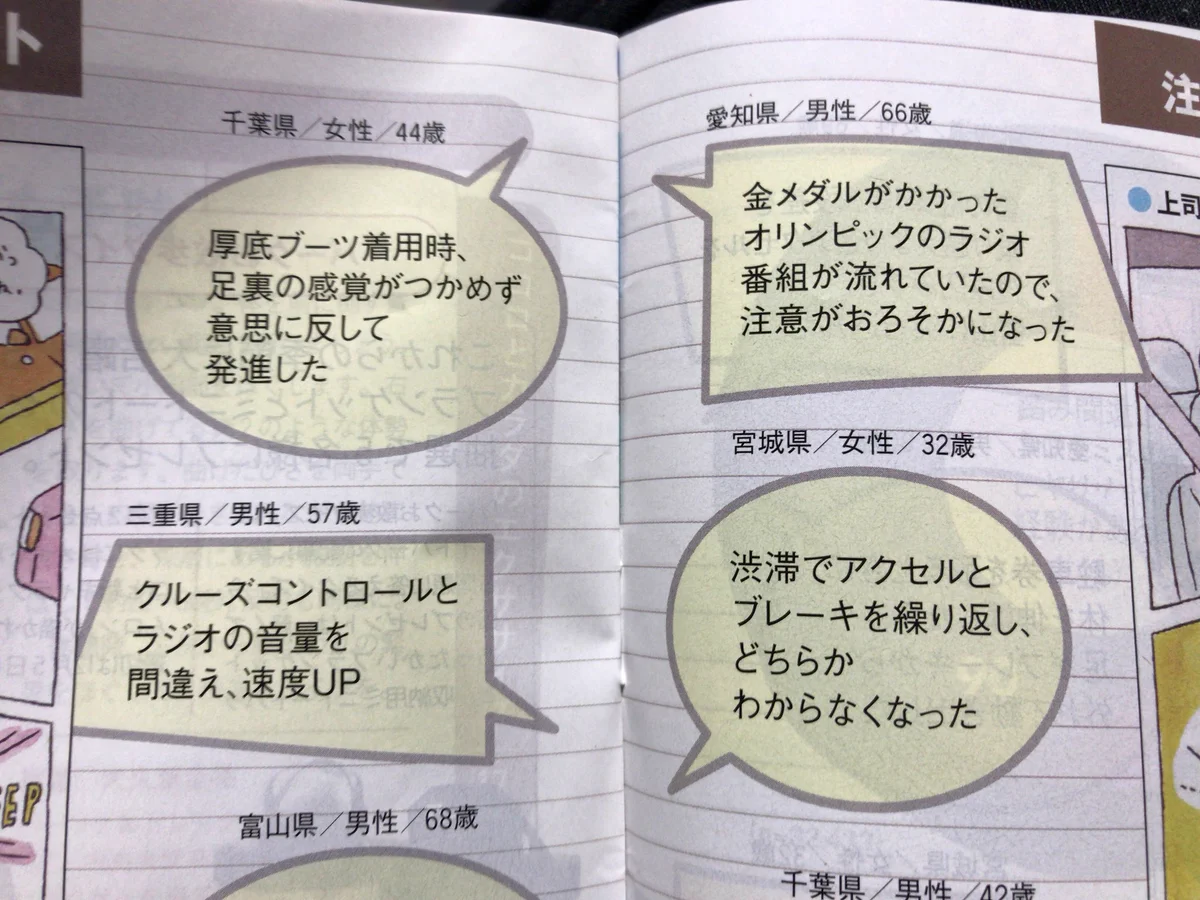 ト
千葉県／女性／44歳
厚底ブーツ着用時、
足裏の感覚がつかめず
意思に反して
発進した
三重県／男性／57歳
クルーズコントロールと
ラジオの音量を
間違え、速度UP
富山県／男性／68歳
EEP
注
愛知県／男性／66歳
金メダルがかかった
オリンピックのラジオ
番組が流れていたので、
注意がおろそかになった
宮城県／女性／32歳
渋滞でアクセルと
ブレーキを繰り返し、
どちらか
わからなくなった
千葉県／男性／42歳
●上司